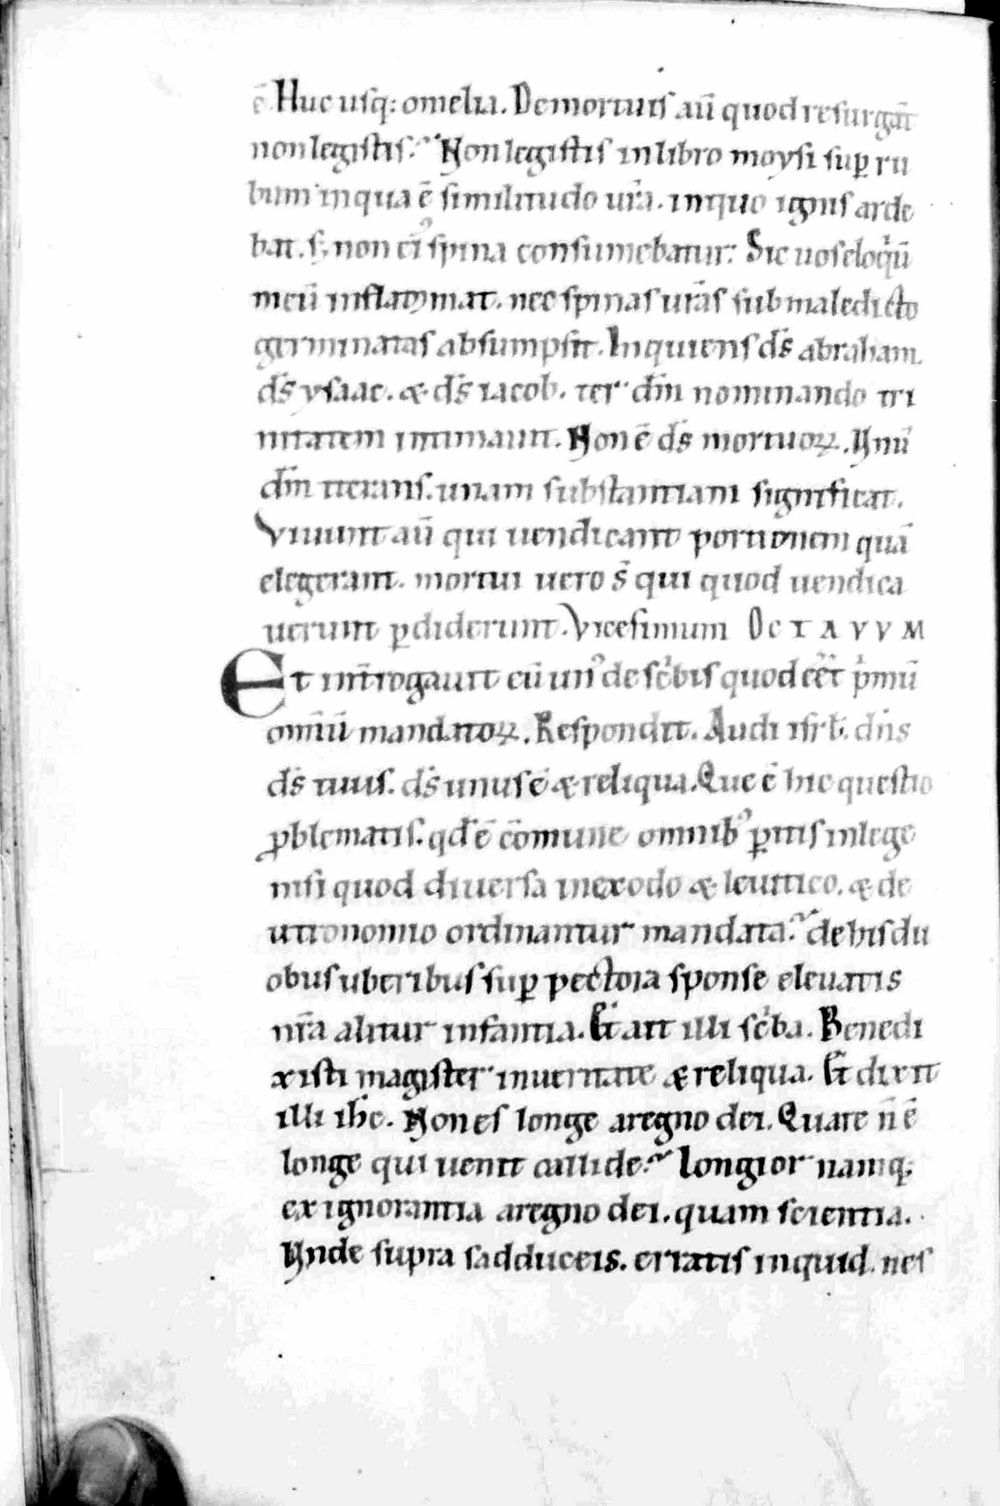 ē Huc usq: omelia. De mortuis aū quod resurgāt
non legistis? Non legistis in libro moysi suꝑ ru
bum in qua ē similitudo ur̄a. in quo ignis arde
bat. s; non ei᾽ spina consumebatur: Sic uos eloqⁱū
meū inflammat. nec spinas ur̄as sub maledicto
germinatas absumpsit. Inquiens ds̄ abraham.
ds̄ ysaac. & ds̄ iacob. ter dm̄ nominando tri
nitatem intimauit. Non ē ds̄ mortuoꝝ. Unū
dm̄ iterans. unam substantiam significat.
Viuunt aū qui uendicant portionem quā
elegerant. mortui uero s̄ qui quod uendica
uerunt ꝑdiderunt. Vicesimum OCTAVVM
Et int̄rogauit eū un᾽ de scⁱbis quod eēt pⁱmū
omīū mandatoꝝ. Respondit. Audi isrł. dn̄s
ds̄ tuus. ds̄ unus ē & reliqua. Que ē hic questio
ꝓblematis. qd̄ ē cōmune omnib᾽ ꝑitis in lege
nisi quod diuersa in exodo & leuitico. & de
utronomio ordinantur mandata? de his du
obus uberibus suꝑ pectora sponse eleuatis
nr̄a alitur infantia. Et ait illi scⁱba. Benedi
xisti magister in ueritate & reliqua. Et dixit
illi ihc̄. Non es longe a regno dei. Quare n̄ ē
longe qui uenit callide? longior namq;
ex ignorantia a regno dei. quam scientia.
Unde supra sadduceis. erratis inquid. nes